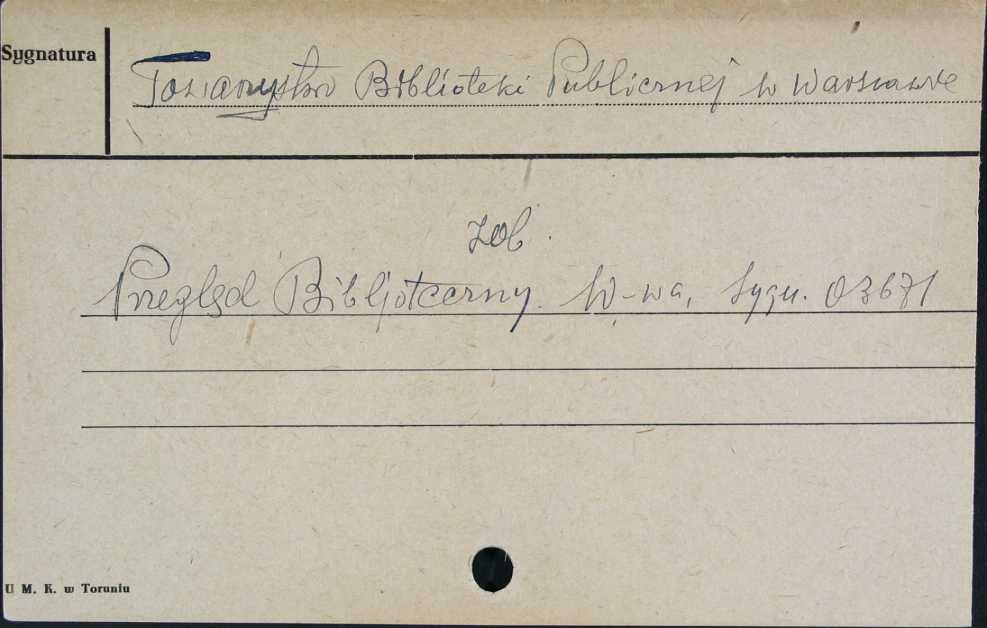 Sygnatura
Towarzystwo Biblioteki Publicznej w Warszawie
zob.
Przegląd Bibljoteczny. W-wa, Sygn. 03671
U M. K. w Toruniu